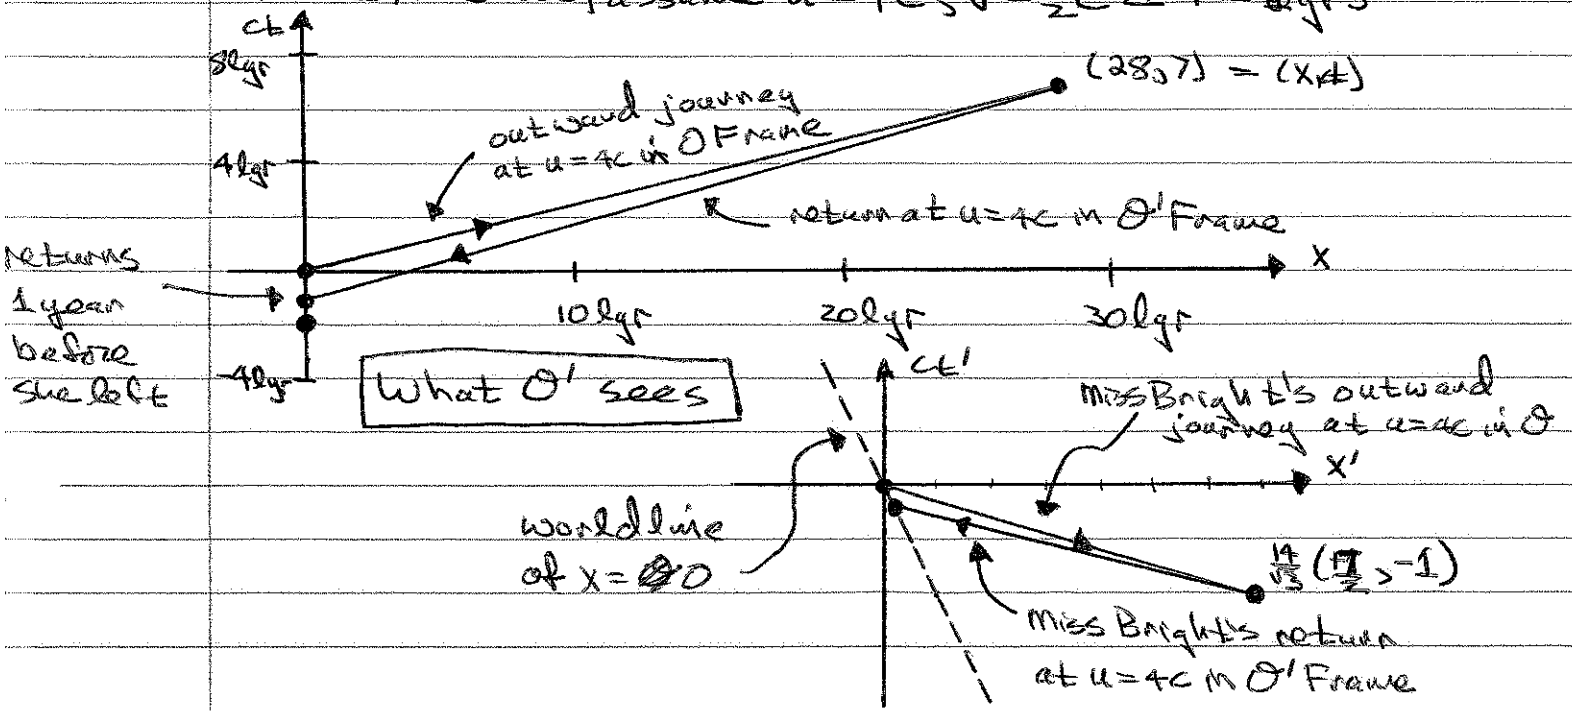 assume u = 4c, v = 1/2 c
ct
8lyr
(28,7) = (x,ct)
outward journey
at u=4c in O Frame
4lyr
return at u=4c in O' Frame
returns
1 year
before
she left
x
10lyr
20lyr
30lyr
-4lyr
What O' sees
ct'
Miss Bright's outward
journey at u=4c in O
x'
worldline
of x = 0
14/√3 (7/2, -1)
Miss Bright's return
at u=4c in O' Frame